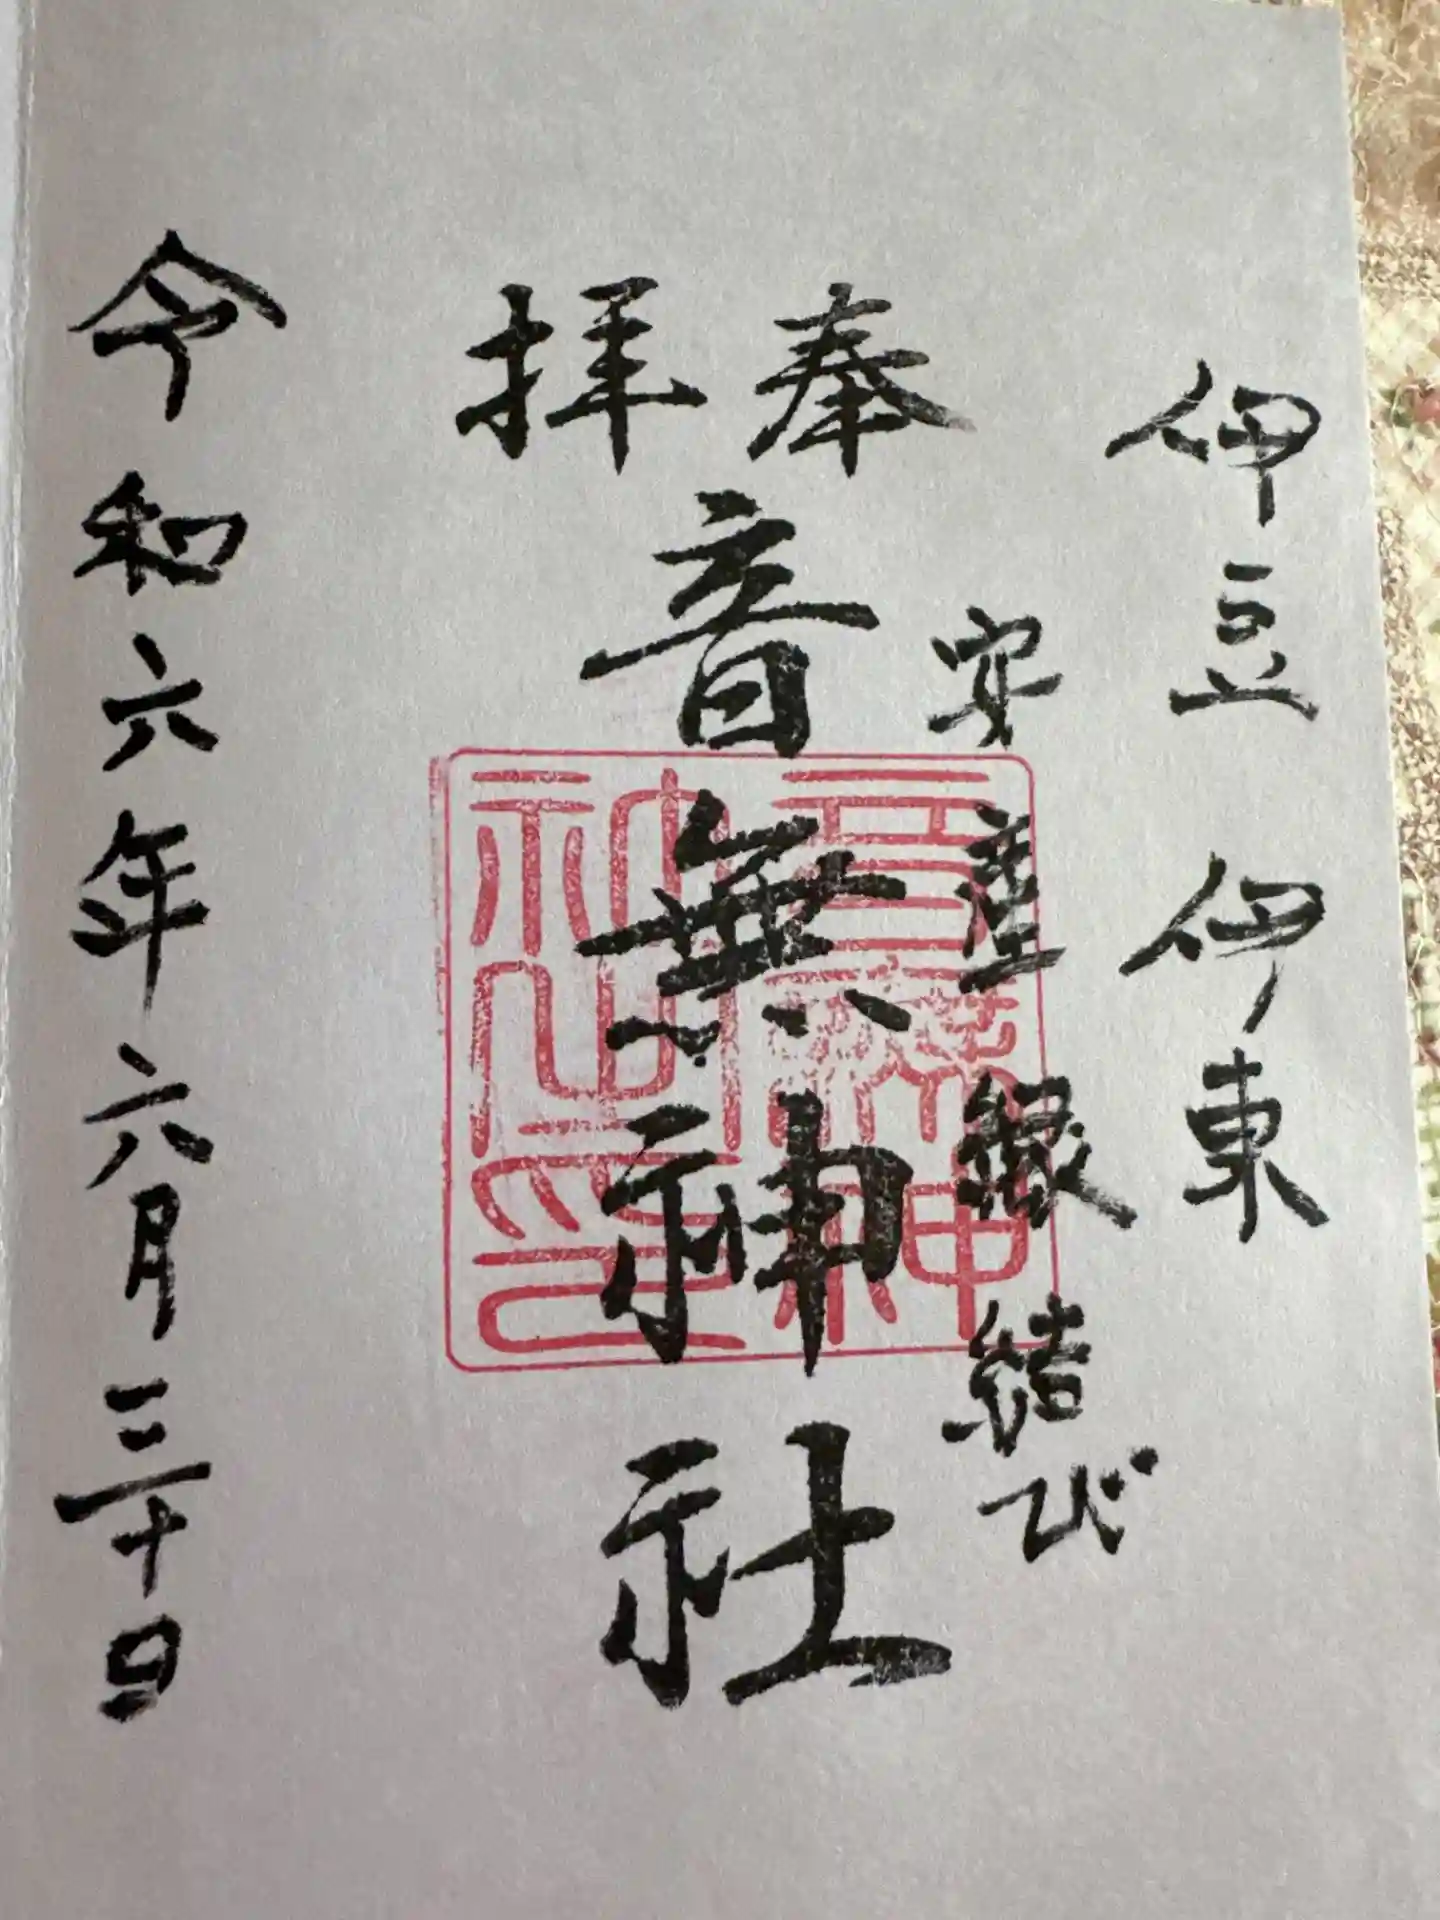 伊豆 伊東
安産 縁結び
奉拝
音無神社
音無神
社之印
令和六年六月三十日